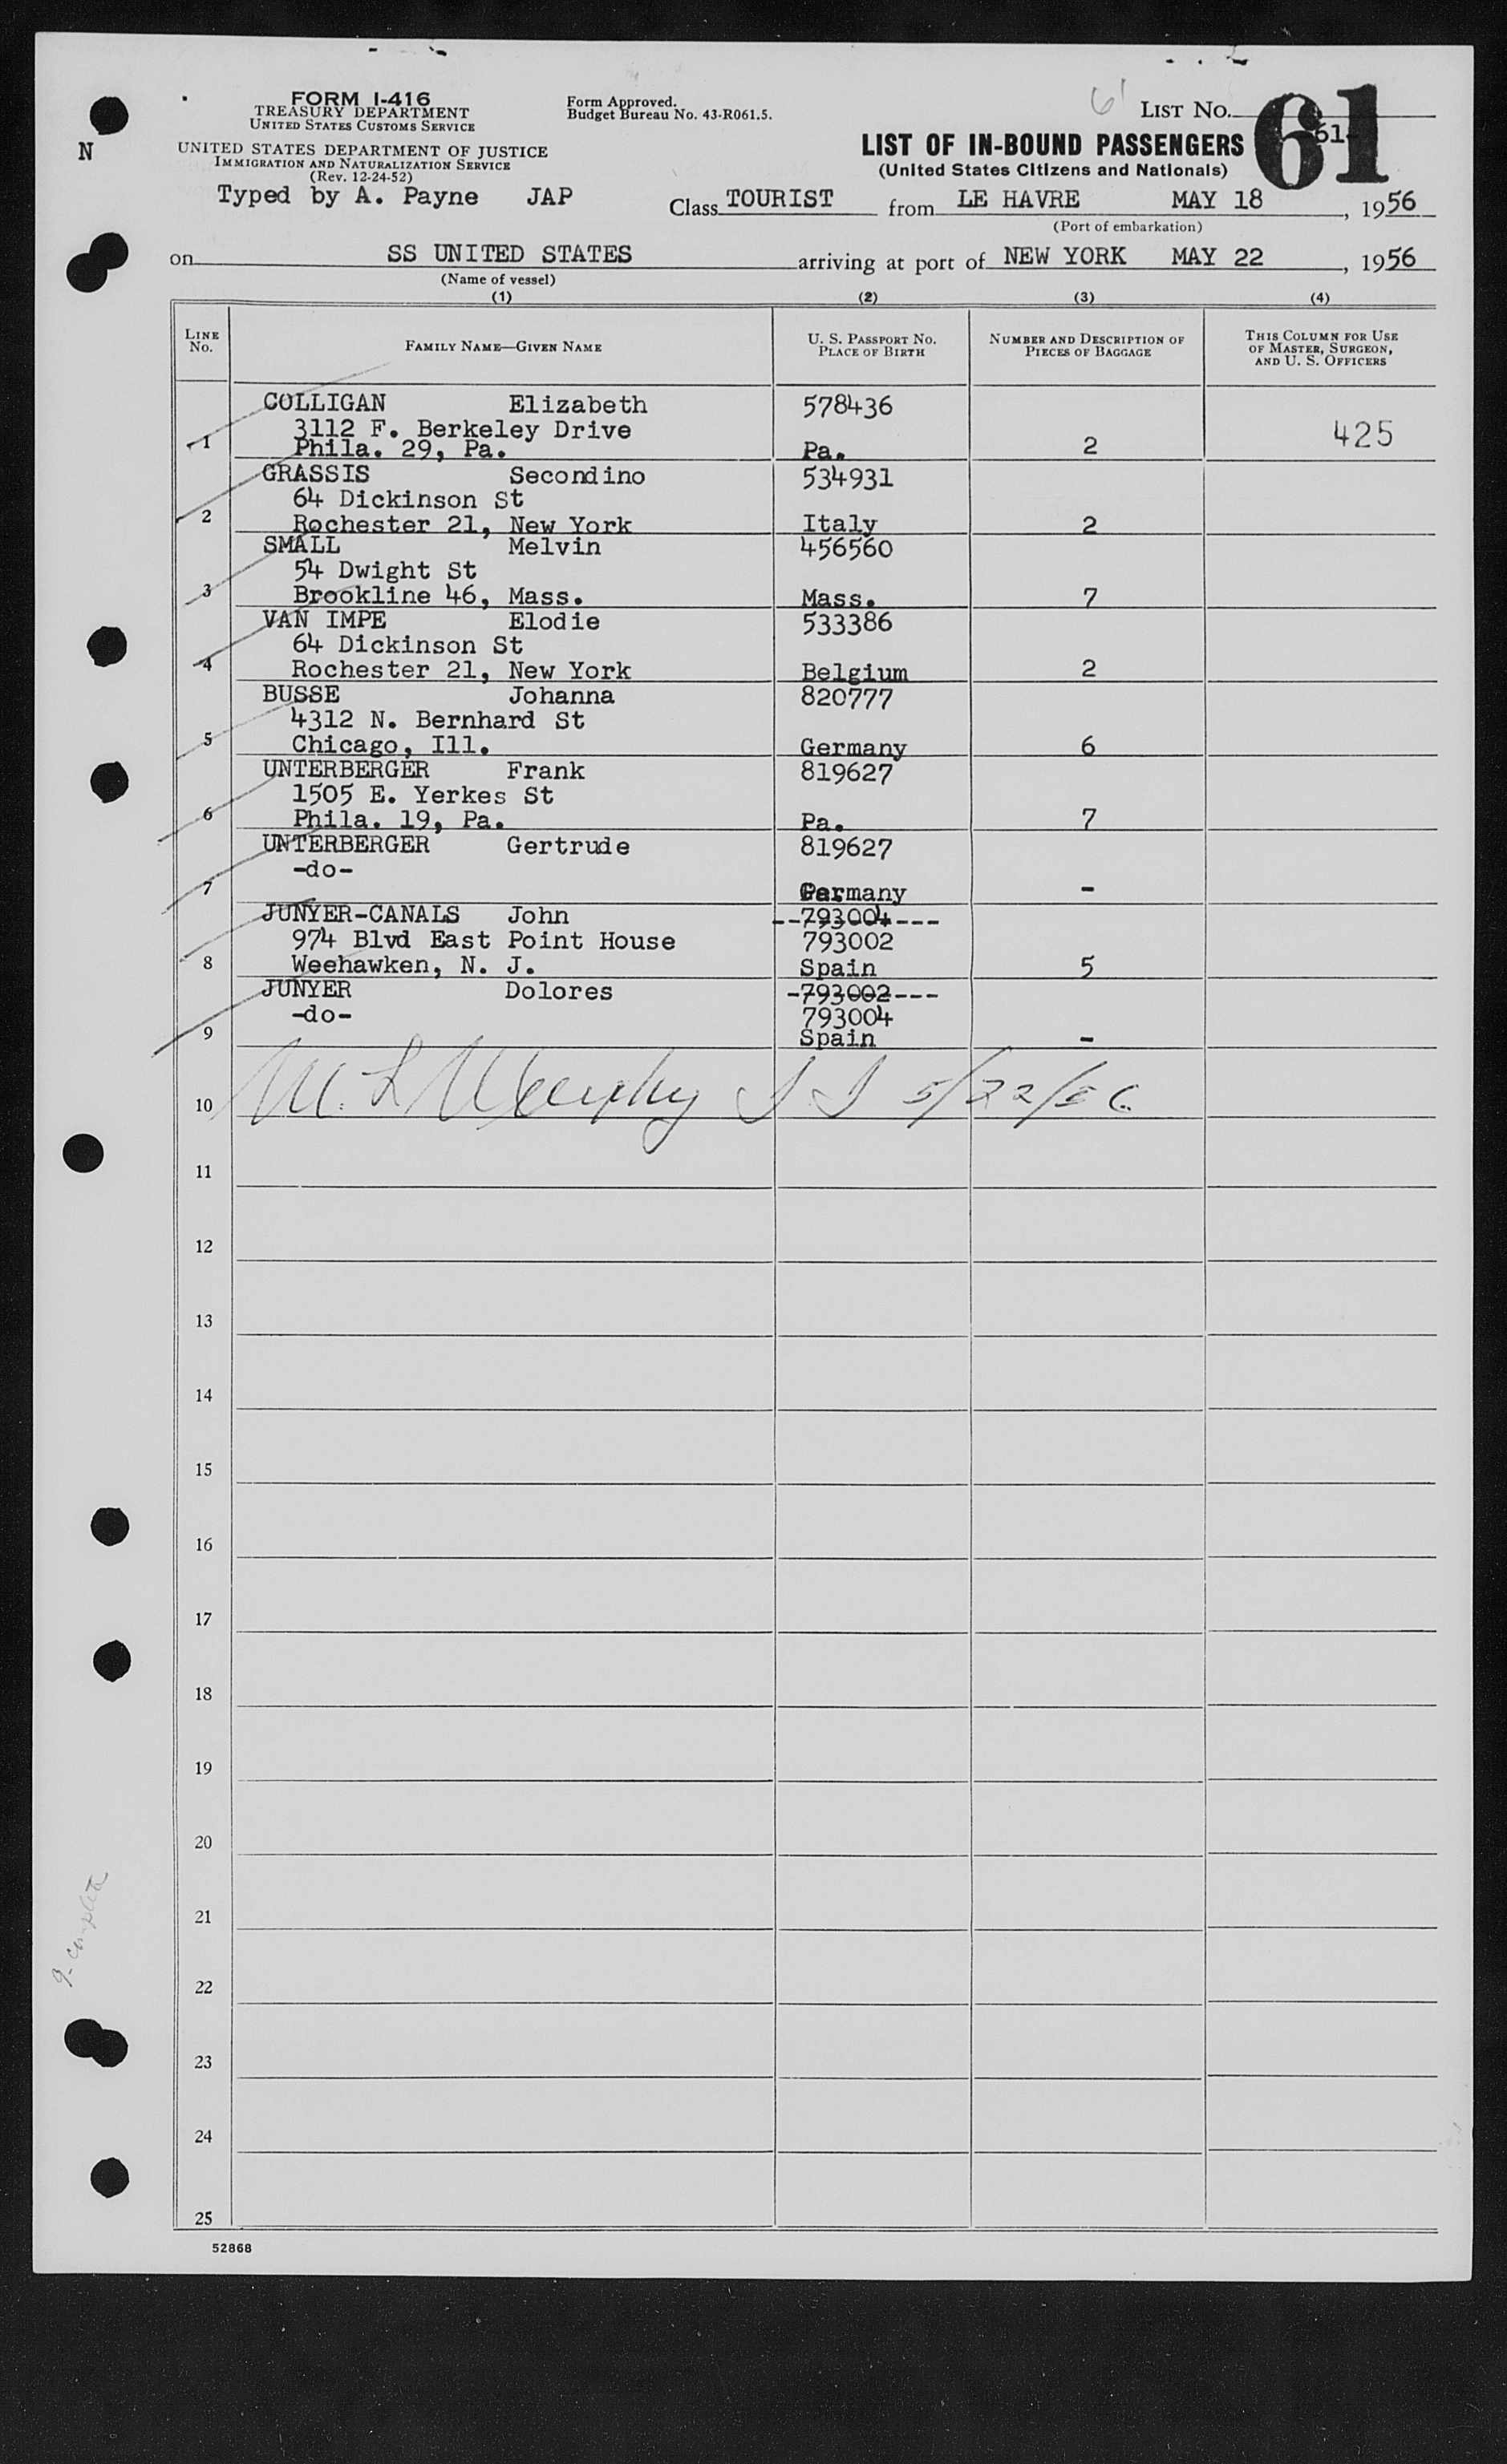 FORM I-416
TREASURY DEPARTMENT
UNITED STATES CUSTOMS SERVICE
UNITED STATES DEPARTMENT OF JUSTICE
IMMIGRATION AND NATURALIZATION SERVICE
(Rev. 12-24-52)
Form Approved.
Budget Bureau No. 43-R061.5.
61 LIST No. 61
61
LIST OF IN-BOUND PASSENGERS
(United States Citizens and Nationals)
N
Typed by A. Payne JAP
Class TOURIST from LE HAVRE MAY 18, 1956
(Port of embarkation)
on SS UNITED STATES arriving at port of NEW YORK MAY 22, 1956
(Name of vessel)
(1) (2) (3) (4)
LINE No. FAMILY NAME—GIVEN NAME U. S. PASSPORT No. PLACE OF BIRTH NUMBER AND DESCRIPTION OF PIECES OF BAGGAGE THIS COLUMN FOR USE OF MASTER, SURGEON, AND U. S. OFFICERS
COLLIGAN Elizabeth 578436
3112 F. Berkeley Drive 425
1 Phila. 29, Pa. Pa. 2
GRASSIS Secondino 534931
64 Dickinson St
2 Rochester 21, New York Italy 2
SMALL Melvin 456560
54 Dwight St
3 Brookline 46, Mass. Mass. 7
VAN IMPE Elodie 533386
64 Dickinson St
4 Rochester 21, New York Belgium 2
BUSSE Johanna 820777
4312 N. Bernhard St
5 Chicago, Ill. Germany 6
UNTERBERGER Frank 819627
1505 E. Yerkes St
6 Phila. 19, Pa. Pa. 7
UNTERBERGER Gertrude 819627
-do-
7 Germany -
JUNYER-CANALS John --793004---
974 Blvd East Point House 793002
8 Weehawken, N. J. Spain 5
JUNYER Dolores -793002---
-do- 793004
9 Spain -
10 M. L Murphy I I 5/22/56
11
12
13
14
15
16
17
18
19
20
21
22
23
24
25
52868
9-complete